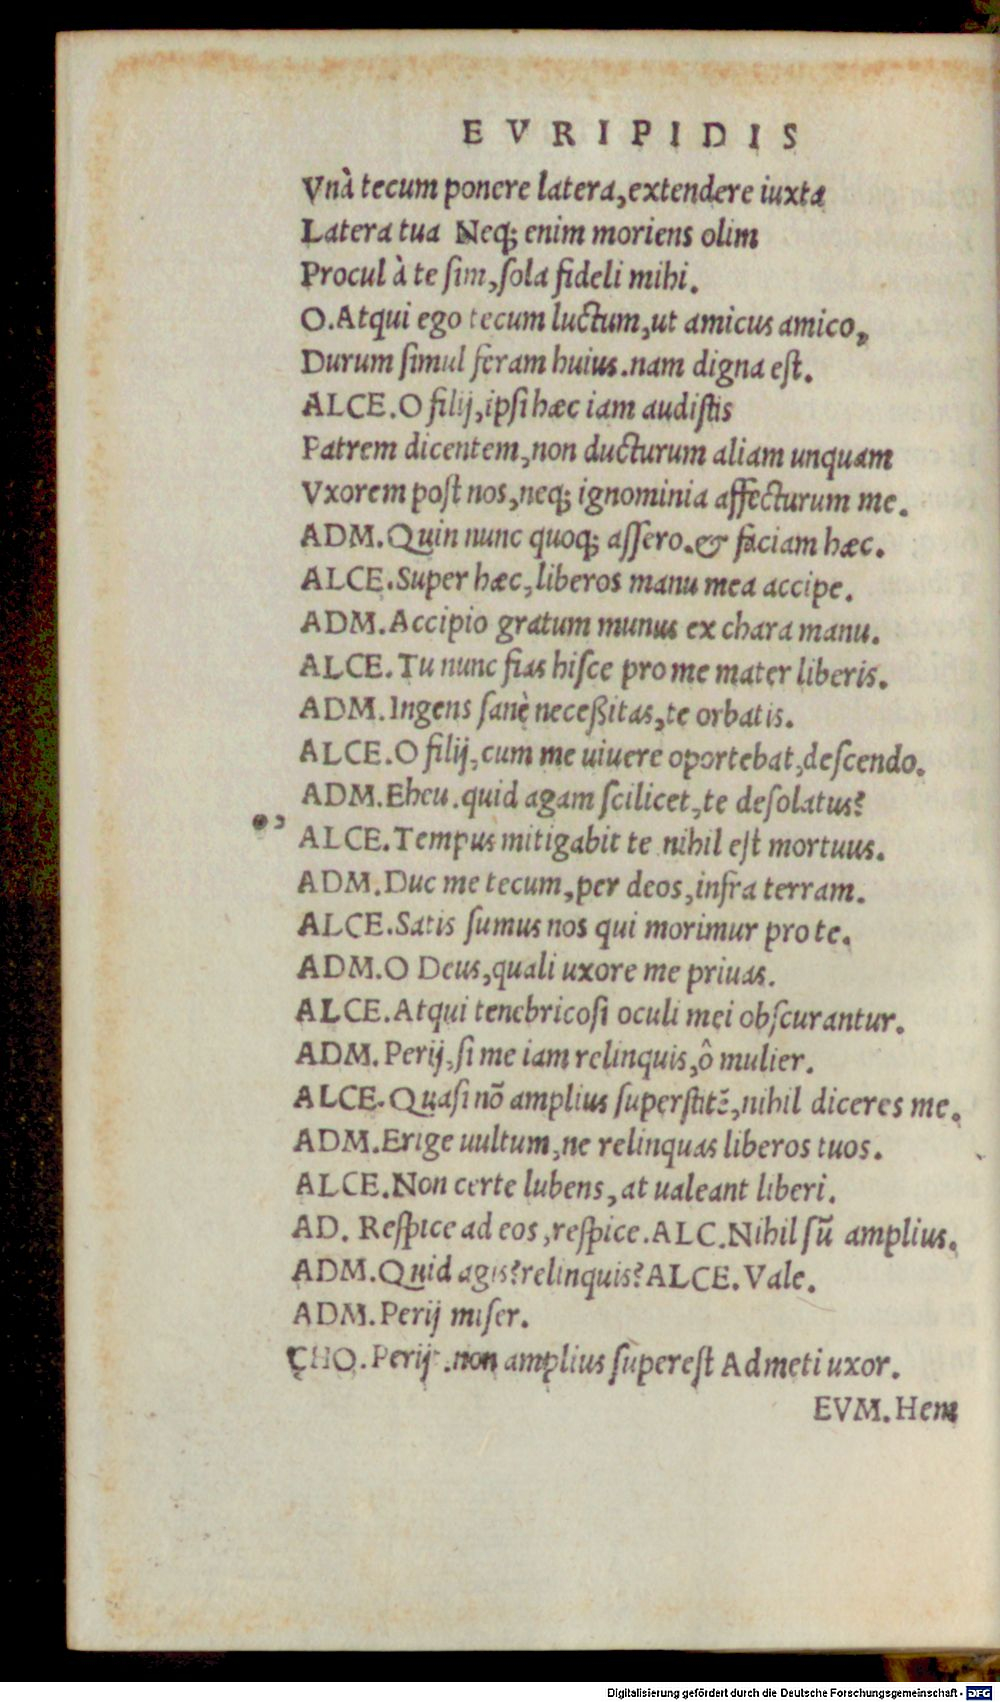 EVRIPIDIS
Vnà tecum ponere latera, extendere iuxta
Latera tua Neq; enim moriens olim
Procul à te ſim, ſola fideli mihi.
O. Atqui ego tecum luctum, ut amicus amico,
Durum ſimul feram huius. nam digna eſt.
ALCE. O filij, ipſi hæc iam audiſtis
Patrem dicentem, non ducturum aliam unquam
Vxorem poſt nos, neq; ignominia affecturum me.
ADM. Quin nunc quoq; aſſero. & faciam hæc.
ALCE. Super hæc, liberos manu mea accipe.
ADM. Accipio gratum munus ex chara manu.
ALCE. Tu nunc fias hiſce pro me mater liberis.
ADM. Ingens ſanè neceßitas, te orbatis.
ALCE. O filij, cum me uiuere oportebat, deſcendo.
ADM. Eheu. quid agam ſcilicet, te deſolatus?
ALCE. Tempus mitigabit te nihil eſt mortuus.
ADM. Duc me tecum, per deos, infra terram.
ALCE. Satis ſumus nos qui morimur pro te.
ADM. O Deus, quali uxore me priuas.
ALCE. Atqui tenebricoſi oculi mei obſcurantur.
ADM. Perij, ſi me iam relinquis, ô mulier.
ALCE. Quaſi nõ amplius ſuperſtitẽ, nihil diceres me.
ADM. Erige uultum, ne relinquas liberos tuos.
ALCE. Non certe lubens, at ualeant liberi.
AD. Reſpice ad eos, reſpice. ALC. Nihil ſũ amplius.
ADM. Quid agis? relinquis? ALCE. Vale.
ADM. Perij miſer.
CHO. Perijt. non amplius ſupereſt Admeti uxor.
EVM. Hem
Digitalisierung gefördert durch die Deutsche Forschungsgemeinschaft - DFG